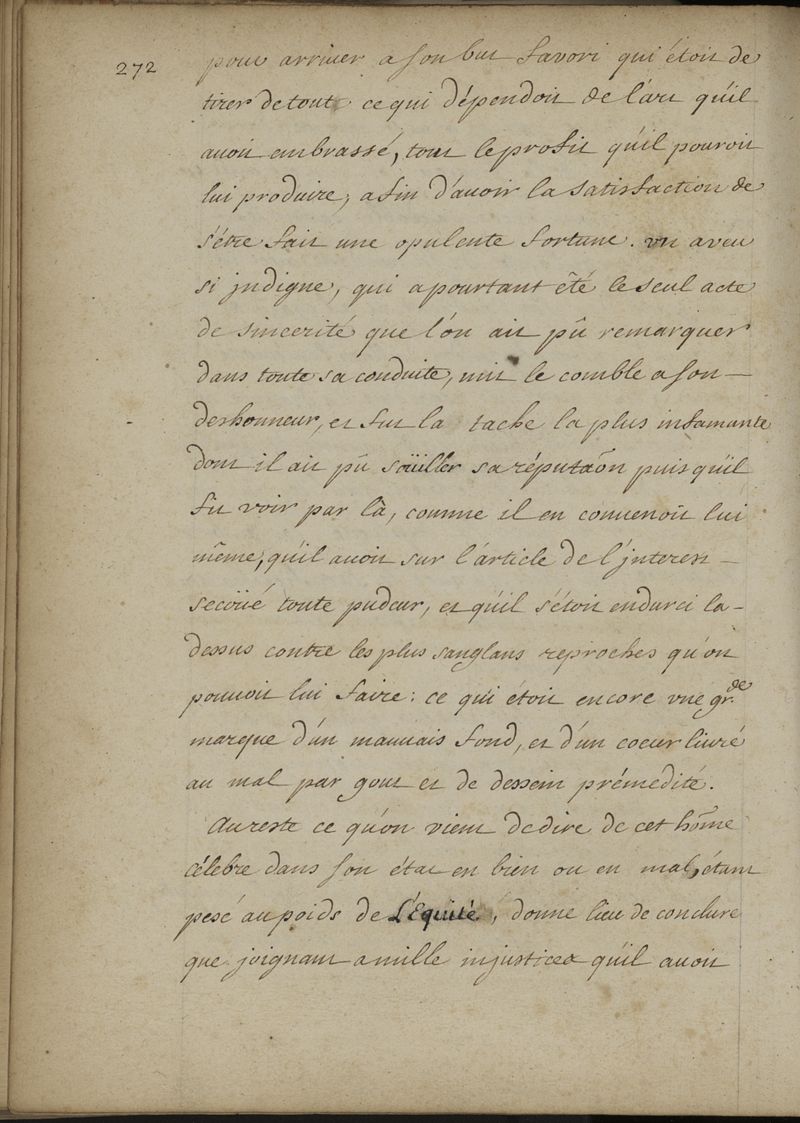 272
pour arriver a son but favori qui étoit de
tirer de tout ce qui dépendoit de l'art qu'il
avoit embrassé, tout le profit qu'il pouroit
lui produire, afin d'avoir la satisfaction de
s'être fait une opulente fortune. un aveu
si jndigne, qui a pourtant êté le seul acte
de sincerité que l'on ait pû remarquer
dans toute sa conduite, mit le comble a son —
deshonneur, et fut la tache la plus infamante
dont il ait pû soüiller sa réputaõn puis qu'il
fit voir par là, comme il en convenoit lui
même, qu'il avoit sur l'article de l'jnterest —
secoüé toute pudeur, et qu'il s'étoit endurci la-
dessus contre les plus sanglans reproches qu'on
pouvoit lui faire: ce qui étoit encore une gr.de
marque d'un mauvais fond, et d'un coeur livré
au mal par gout et de dessein prémedité.
Au reste ce qu'on vient de dire de cet hõme
célebre dans son état en bien ou en mal, étant
pesé au poids de L'Equité, donne lieu de conclure
que joignant a mille injustices qu'il avoit